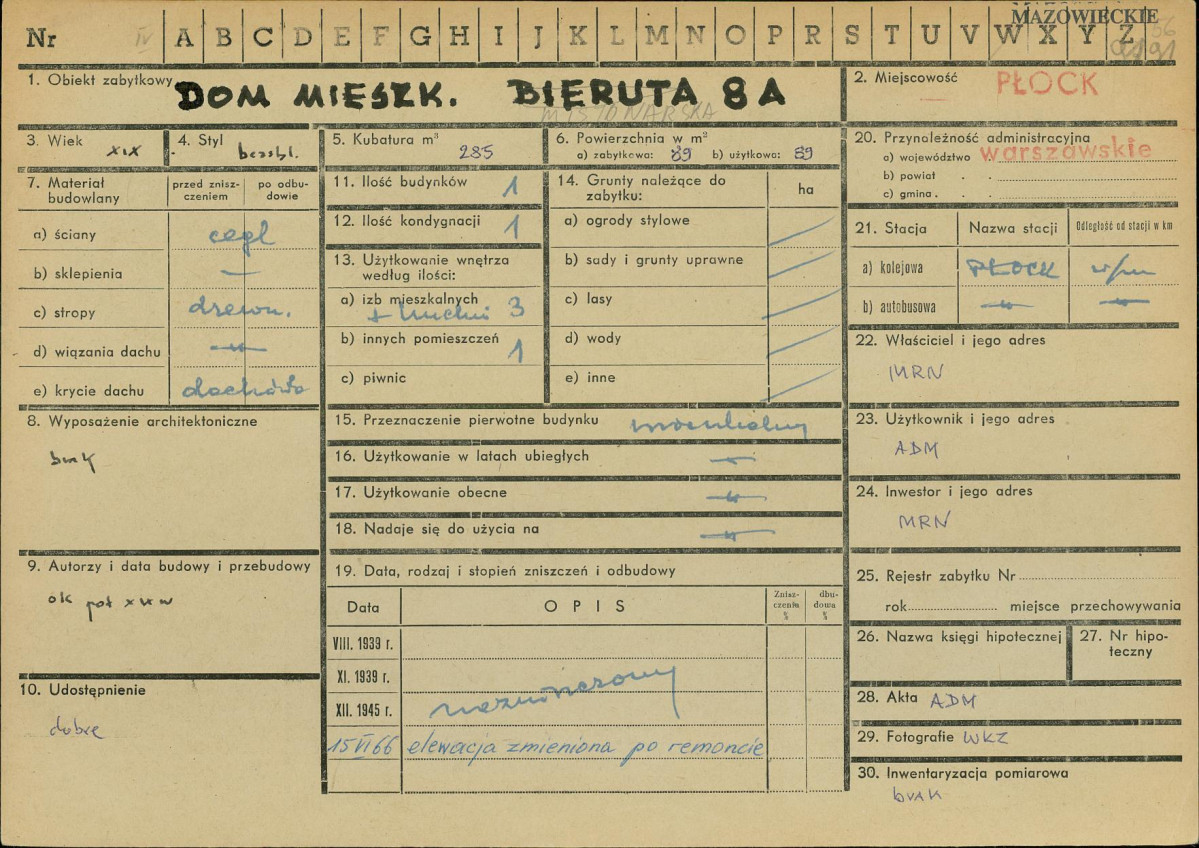 MAZOWIECKIE
Nr IV A B C D E F G H I J K L M N O P R S T U V W X Y Z
1. Obiekt zabytkowy DOM MIESZK. BIERUTA 8A
MISJONARSKA
2. Miejscowość PŁOCK
3. Wiek XIX
4. Styl bezstyl.
5. Kubatura m³ 285
6. Powierzchnia w m²
a) zabytkowa: 89 b) użytkowa: 89
20. Przynależność administracyjna
a) województwo warszawskie
b) powiat
c) gmina
7. Materiał budowlany
przed zniszczeniem
po odbudowie
a) ściany cegl
b) sklepienia —
c) stropy drewn.
d) wiązania dachu —"—
e) krycie dachu dachówka
11. Ilość budynków 1
12. Ilość kondygnacji 1
13. Użytkowanie wnętrza
według ilości:
a) izb mieszkalnych 3
+ kuchni
b) innych pomieszczeń 1
c) piwnic
14. Grunty należące do
zabytku:
ha
a) ogrody stylowe
b) sady i grunty uprawne
c) lasy
d) wody
e) inne
21. Stacja
Nazwa stacji
Odległość od stacji w km
a) kolejowa PŁOCK w/m
b) autobusowa —"— —"—
22. Właściciel i jego adres
MRN
8. Wyposażenie architektoniczne
brak
15. Przeznaczenie pierwotne budynku mieszkalny
16. Użytkowanie w latach ubiegłych —"—
17. Użytkowanie obecne —"—
18. Nadaje się do użycia na —"—
23. Użytkownik i jego adres
ADM
24. Inwestor i jego adres
MRN
9. Autorzy i data budowy i przebudowy
ok poł XIX w
10. Udostępnienie
dobre
19. Data, rodzaj i stopień zniszczeń i odbudowy
Data
OPIS
Zniszczenia %
dbudowa %
VIII. 1939 r.
XI. 1939 r.
XII. 1945 r. niezniszczony
15 VI 66 elewacja zmieniona po remoncie
25. Rejestr zabytku Nr
rok miejsce przechowywania
26. Nazwa księgi hipotecznej
27. Nr hipoteczny
28. Akta ADM
29. Fotografie WKZ
30. Inwentaryzacja pomiarowa
brak